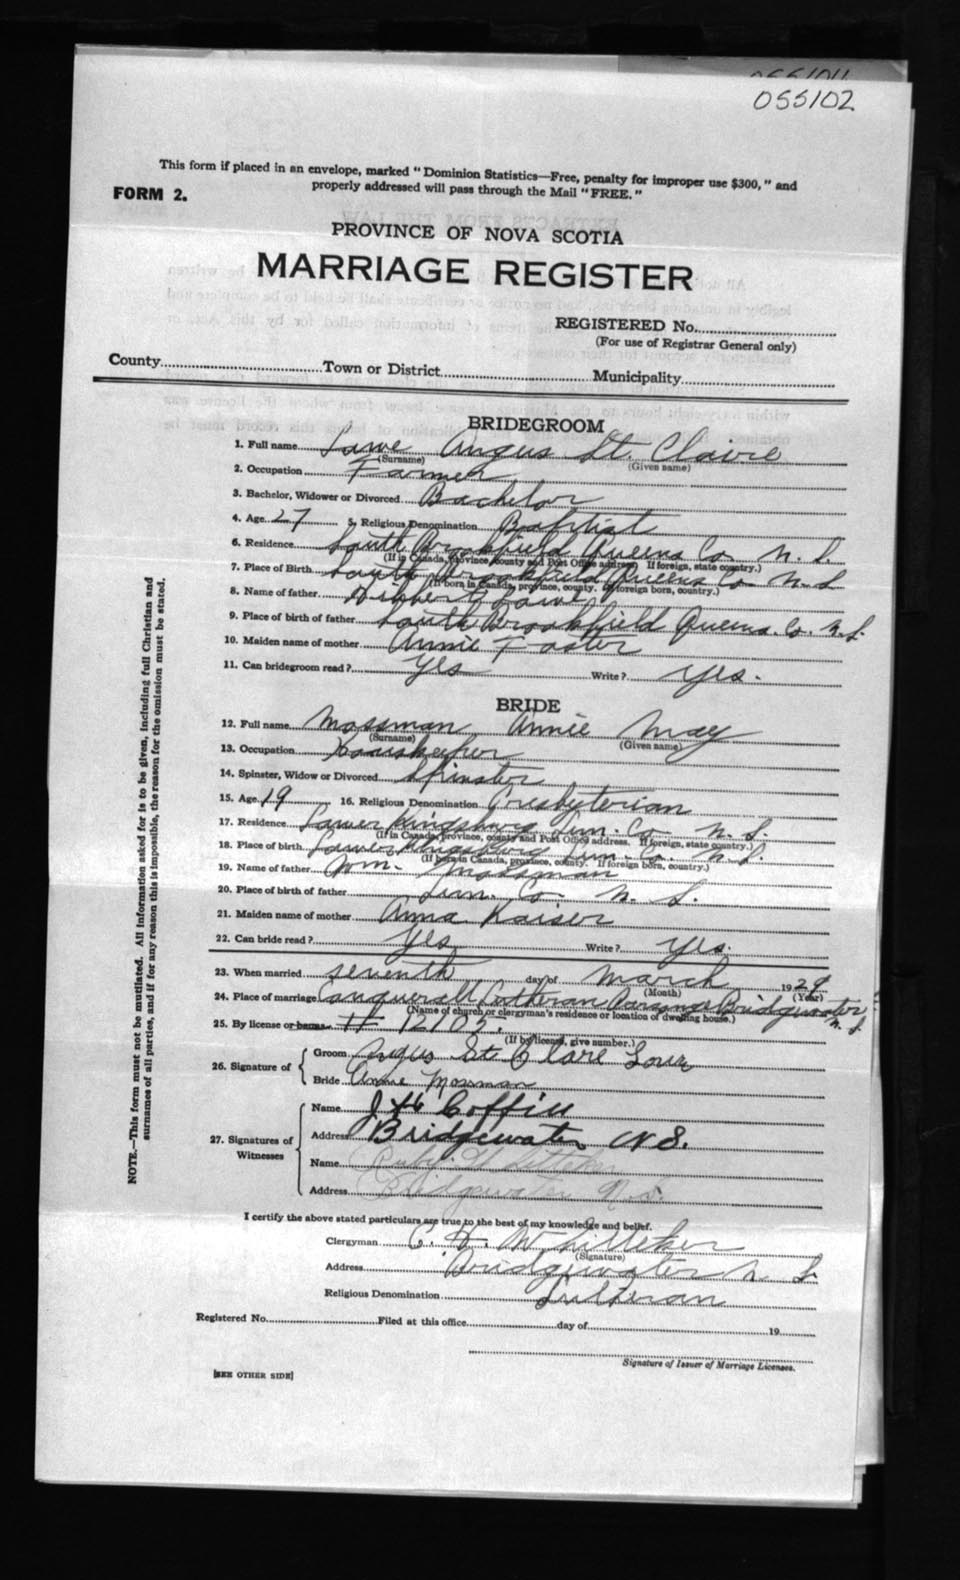 055102
This form if placed in an envelope, marked "Dominion Statistics—Free, penalty for improper use $300," and
properly addressed will pass through the Mail "FREE."
FORM 2.
PROVINCE OF NOVA SCOTIA
MARRIAGE REGISTER
REGISTERED No.
(For use of Registrar General only)
County Town or District Municipality
BRIDEGROOM
1. Full name Lowe Angus St. Claire
(Surname) (Given name)
2. Occupation Farmer
3. Bachelor, Widower or Divorced Bachelor
4. Age 27 5. Religious Denomination Baptist
6. Residence South Brookfield Queens Co N. S.
(If in Canada, province, county and Post Office address. If foreign, state country.)
7. Place of Birth South Brookfield Queens Co N. S
(If born in Canada, province, county. If foreign born, country.)
8. Name of father Lowe
9. Place of birth of father South Brookfield Queens. Co. N.S.
10. Maiden name of mother Annie Foster
11. Can bridegroom read? Yes Write? Yes.
BRIDE
12. Full name Mossman Annie May
(Surname) (Given name)
13. Occupation Houskeeper
14. Spinster, Widow or Divorced Spinster
15. Age 19 16. Religious Denomination Presbyterian
17. Residence Lower Kingsburg Lun. Co N. S.
(If in Canada, province, county and Post Office address. If foreign, state country.)
18. Place of birth Lower Kingsburg Lun. Co. N. S.
(If born in Canada, province, county. If foreign born, country.)
19. Name of father Wm. Mossman
20. Place of birth of father Lun. Co N. S.
21. Maiden name of mother Anna Kaiser
22. Can bride read? Yes Write? Yes.
23. When married seventh day of March 1929
(Month) (Year)
24. Place of marriage Conquerall Lutheran Parsonage Bridgewater N. S
(Name of church or clergyman's residence or location of dwelling house.)
25. By license or banns # 12105.
(If by license, give number.)
26. Signature of Groom Angus St Clare Lowe
Bride Annie Mossman
27. Signatures of Witnesses
Name Coffill
Address Bridgewater N S.
Name Ruby
Address Bridgewater N.S.
I certify the above stated particulars are true to the best of my knowledge and belief.
Clergyman C. H. Whitteker
(Signature)
Address Bridgewater N S
Religious Denomination Lutheran
Registered No. Filed at this office day of 19
Signature of Issuer of Marriage Licenses.
[SEE OTHER SIDE]
NOTE.—This form must not be mutilated. All information asked for is to be given, including full Christian and
surnames of all parties, and if for any reason this is impossible, the reason for the omission must be stated.